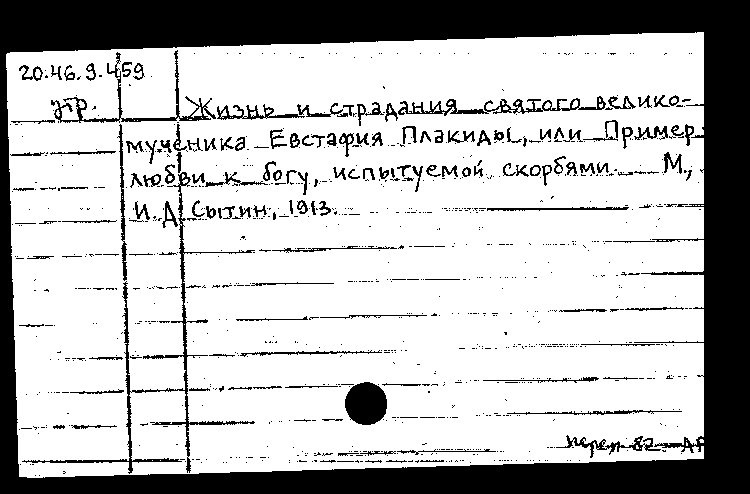 20.46.9.459
утр.
Жизнь и страдания святого велико-
мученика Евстафия Плакиды, или Пример
любви к богу, испытуемой скорбями. М.,
И.Д. Сытин, 1913.
перep 82